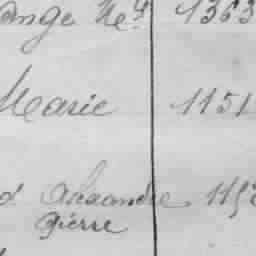 ange 1363
Marie 1151
d Alexandre
Pierre